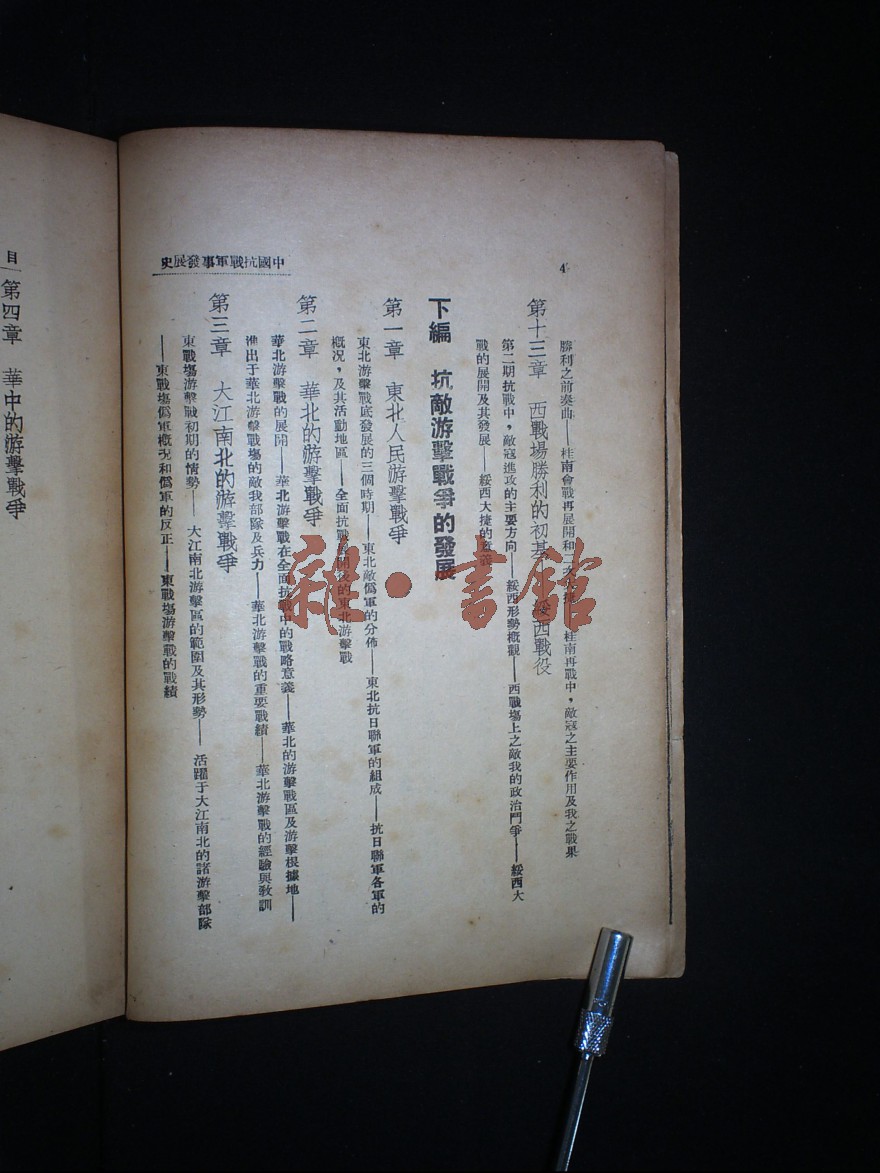 4
勝利之前奏曲——桂南會戰再展開和二次大捷——桂南再戰中，敵寇之主要作用及我之戰果
第十三章　西戰場勝利的初基——綏西戰役
第二期抗戰中，敵寇進攻的主要方向——綏西形勢概觀——西戰場上之敵我的政治鬥爭——綏西大
戰的展開及其發展——綏西大捷的意義
下編　抗敵游擊戰爭的發展
第一章　東北人民游擊戰爭
東北游擊戰底發展的三個時期——東北敵僞軍的分佈——東北抗日聯軍的組成——抗日聯軍各軍的
概况，及其活動地區——全面抗戰展開後的東北游擊戰
第二章　華北的游擊戰爭
華北游擊戰的展開——華北游擊戰在全面抗戰中的戰略意義——華北的游擊戰區及游擊根據地——
進出于華北游擊戰場的敵我部隊及兵力——華北游擊戰的重要戰績——華北游擊戰的經驗與敎訓
第三章　大江南北的游擊戰爭
東戰塲游擊戰初期的情勢——大江南北游擊區的範圍及其形勢——活躍于大江南北的諸游擊部隊
——東戰塲僞軍概况和僞軍的反正——東戰塲游擊戰的戰績
中國抗戰軍事發展史
目
第四章　華中的游擊戰爭
雜·書館